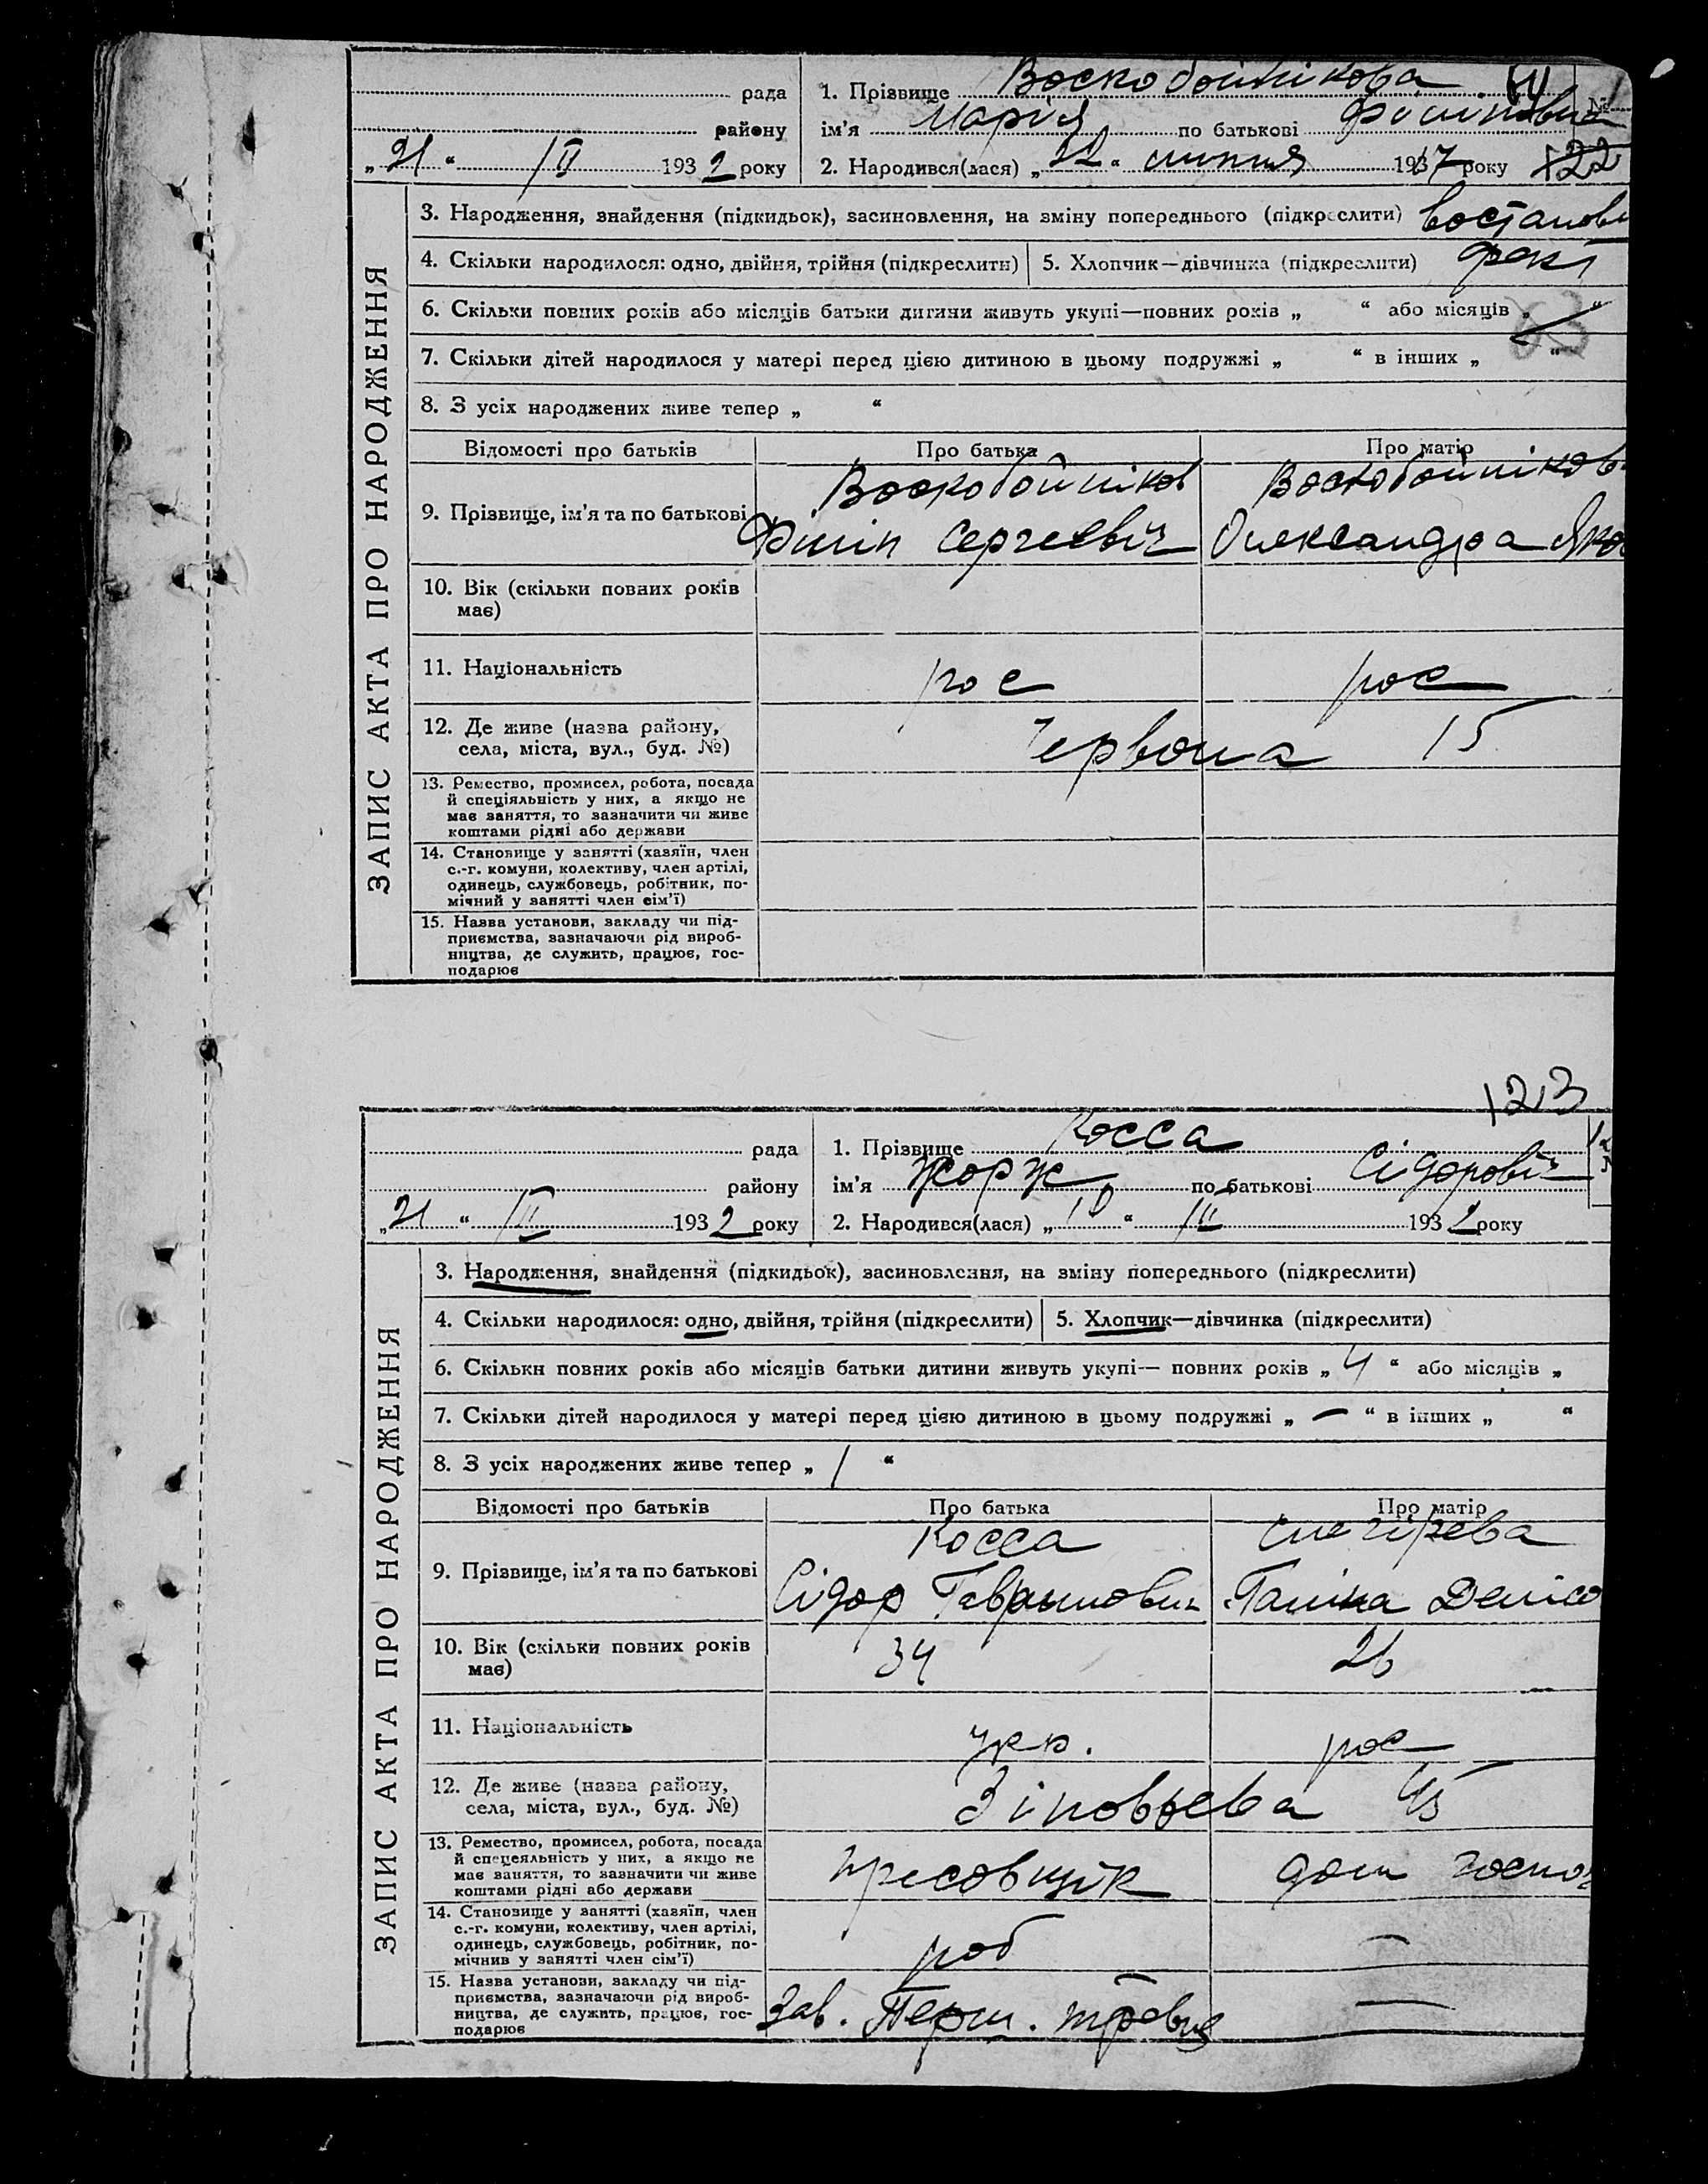 рада 1. Прізвище Воскобойнікова
району ім'я Марія по батькові
„21“ III 1932 року 2. Народився(лася) „22“ липня 1917 року 122
ЗАПИС АКТА ПРО НАРОДЖЕННЯ
3. Народження, знайдення (підкидьок), засиновлення, на зміну попереднього (підкреслити) востановл
4. Скільки народилося: одно, двійня, трійня (підкреслити) 5. Хлопчик—дівчинка (підкреслити) факт
6. Скільки повних років або місяців батьки дитини живуть укупі—повних років „ “ або місяців „ “
7. Скільки дітей народилося у матері перед цією дитиною в цьому подружжі „ “ в інших „ “
8. З усіх народжених живе тепер „ “
Відомості про батьків Про батька Про матір
Воскобойніков Воскобойніков
9. Прізвище, ім'я та по батькові Філіп Сергеевіч Олександра Яко
10. Вік (скільки повних років
має)
11. Національність рос рос
12. Де живе (назва району,
села, міста, вул., буд. №) Червона 15
13. Ремество, промисел, робота, посада
й спеціяльність у них, а якщо не
має заняття, то зазначити чи живе
коштами рідні або держави
14. Становище у занятті (хазяїн, член
с.-г. комуни, колективу, член артілі,
одинець, службовець, робітник, по-
мічний у занятті член сім'ї)
15. Назва установи, закладу чи під-
приємства, зазначаючи рід вироб-
ництва, де служить, працює, гос-
подарює
123
рада 1. Прізвище Косса
району ім'я Жорж по батькові Сідоровіч
„21“ III 1932 року 2. Народився(лася) „10“ III 1932 року
ЗАПИС АКТА ПРО НАРОДЖЕННЯ
3. Народження, знайдення (підкидьок), засиновлення, на зміну попереднього (підкреслити)
4. Скільки народилося: одно, двійня, трійня (підкреслити) 5. Хлопчик—дівчинка (підкреслити)
6. Скільки повних років або місяців батьки дитини живуть укупі— повних років „ 4 “ або місяців „
7. Скільки дітей народилося у матері перед цією дитиною в цьому подружжі „ — “ в інших „ “
8. З усіх народжених живе тепер „ 1 “
Відомості про батьків Про батька Про матір
Косса Снегірева
9. Прізвище, ім'я та по батькові Сідор Гаврилович Галіна Денісо
10. Вік (скільки повних років 34 26
має)
11. Національність укр. рос
12. Де живе (назва району,
села, міста, вул., буд. №) Зіновьева 45
13. Ремество, промисел, робота, посада
й спецеяльність у них, а якщо не
має заняття, то зазначити чи живе
коштами рідні або держави пресовщік дом госпо
14. Становище у занятті (хазяїн, член
с.-г. комуни, колективу, член артілі,
одинець, службовець, робітник, по-
мічнив у занятті член сім'ї) роб —
15. Назва установи, закладу чи під-
приємства, зазначаючи рід вироб-
ництва, де служить, працює, гос-
подарює Зав. Перш. травня —